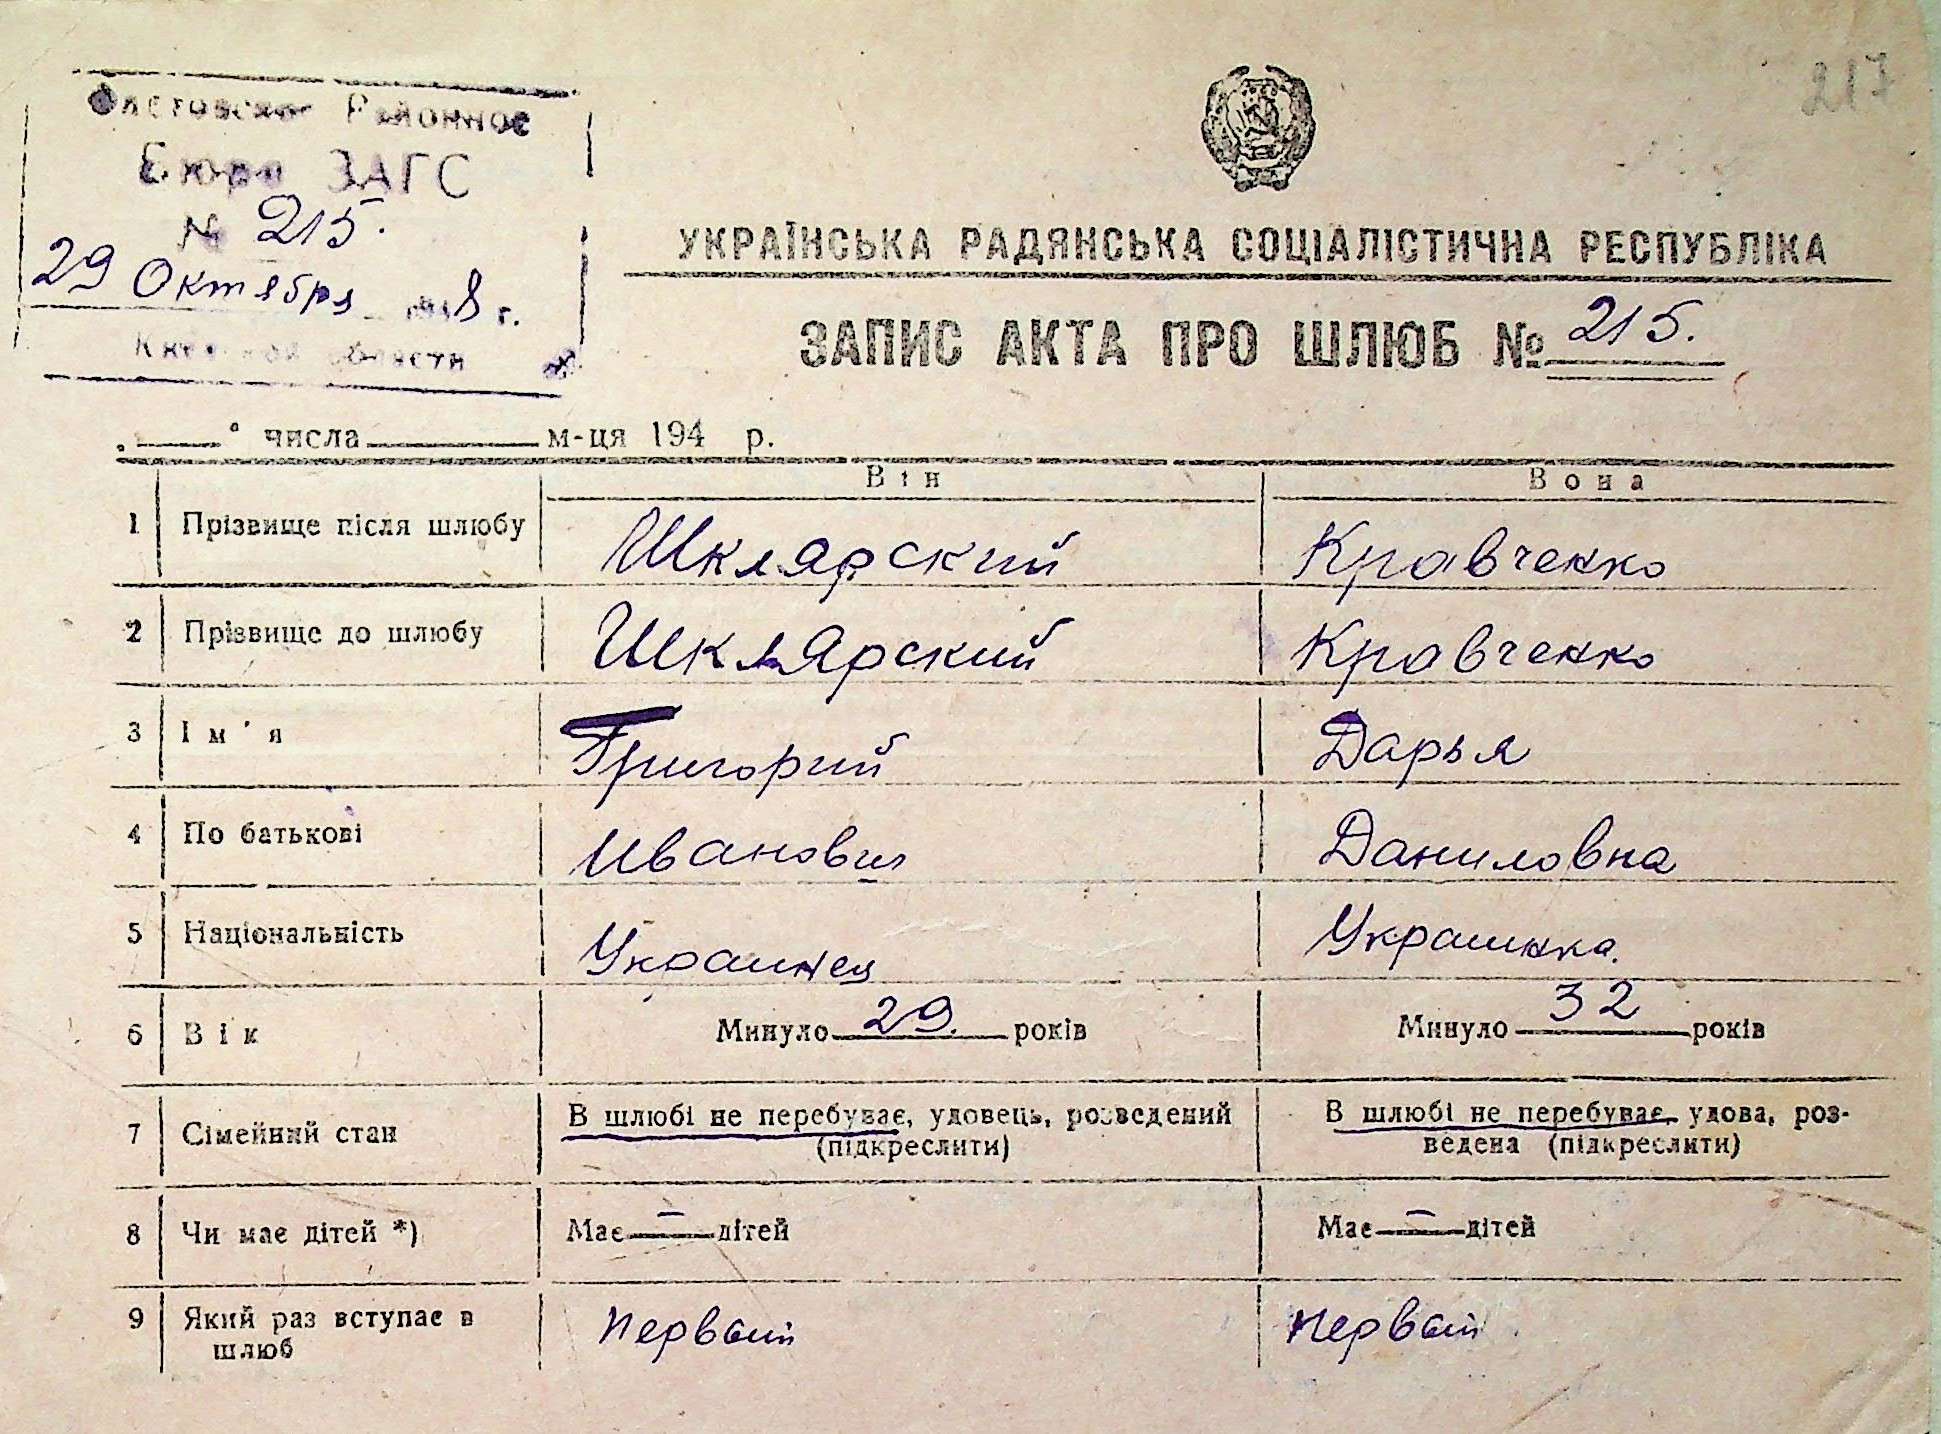 217
Фастовское Районное
Бюро ЗАГС
№ 215.
29 Октября 1948 г.
Киевской области
УКРАЇНСЬКА РАДЯНСЬКА СОЦІАЛІСТИЧНА РЕСПУБЛІКА
ЗАПИС АКТА ПРО ШЛЮБ № 215.
" " числа м-ця 194 р.
Він Вона
1 Прізвище після шлюбу Шклярский Кравченко
2 Прізвище до шлюбу Шклярский Кравченко
3 Ім'я Григорий Дарья
4 По батькові Иванович Даниловна
5 Національність Украинец Украинка.
6 Вік Минуло 29. років Минуло 32 років
7 Сімейний стан В шлюбі не перебуває, удовець, розведений (підкреслити) В шлюбі не перебуває, удова, роз-
ведена (підкреслити)
8 Чи має дітей *) Має — дітей Має — дітей
9 Який раз вступає в
шлюб Первый Первый